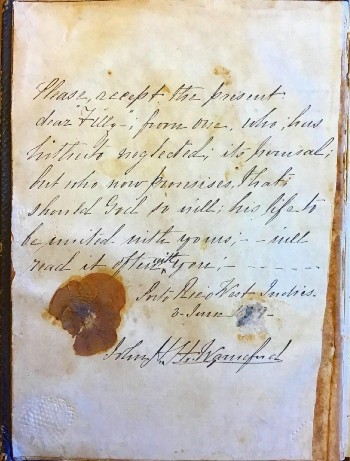 Please, accept the present
dear "Filly", from one, who, has
hitherto neglected, its perusal;
but who now promises, that
should God so will; his life to
be united with yours; - will
read it often with you; - - - - -
Porto Rico West Indies.
3 June
John